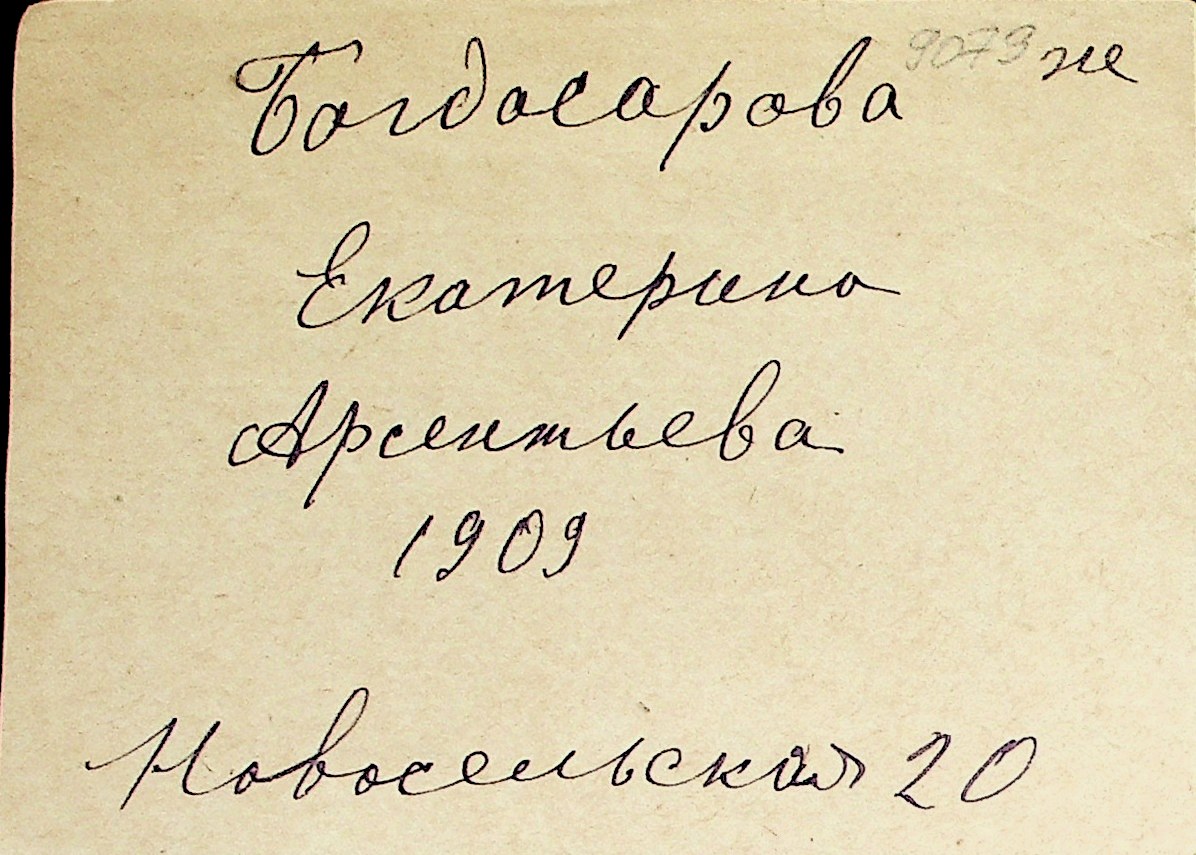 Богдосарова 9079 же
Екатерина
Арсентьева
1909
Новосельская 20